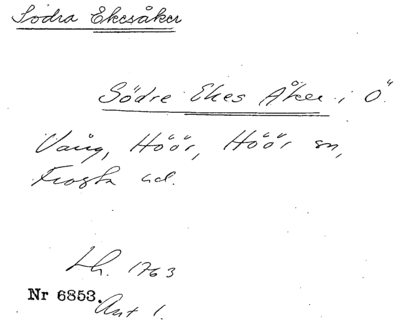 Södra Ekesåker
Södre Ekes Åker i Ö.
Vång, Höör, Höör sn,
Frosta hd.
Lh. 1763
Nr 6853. Ant 1.